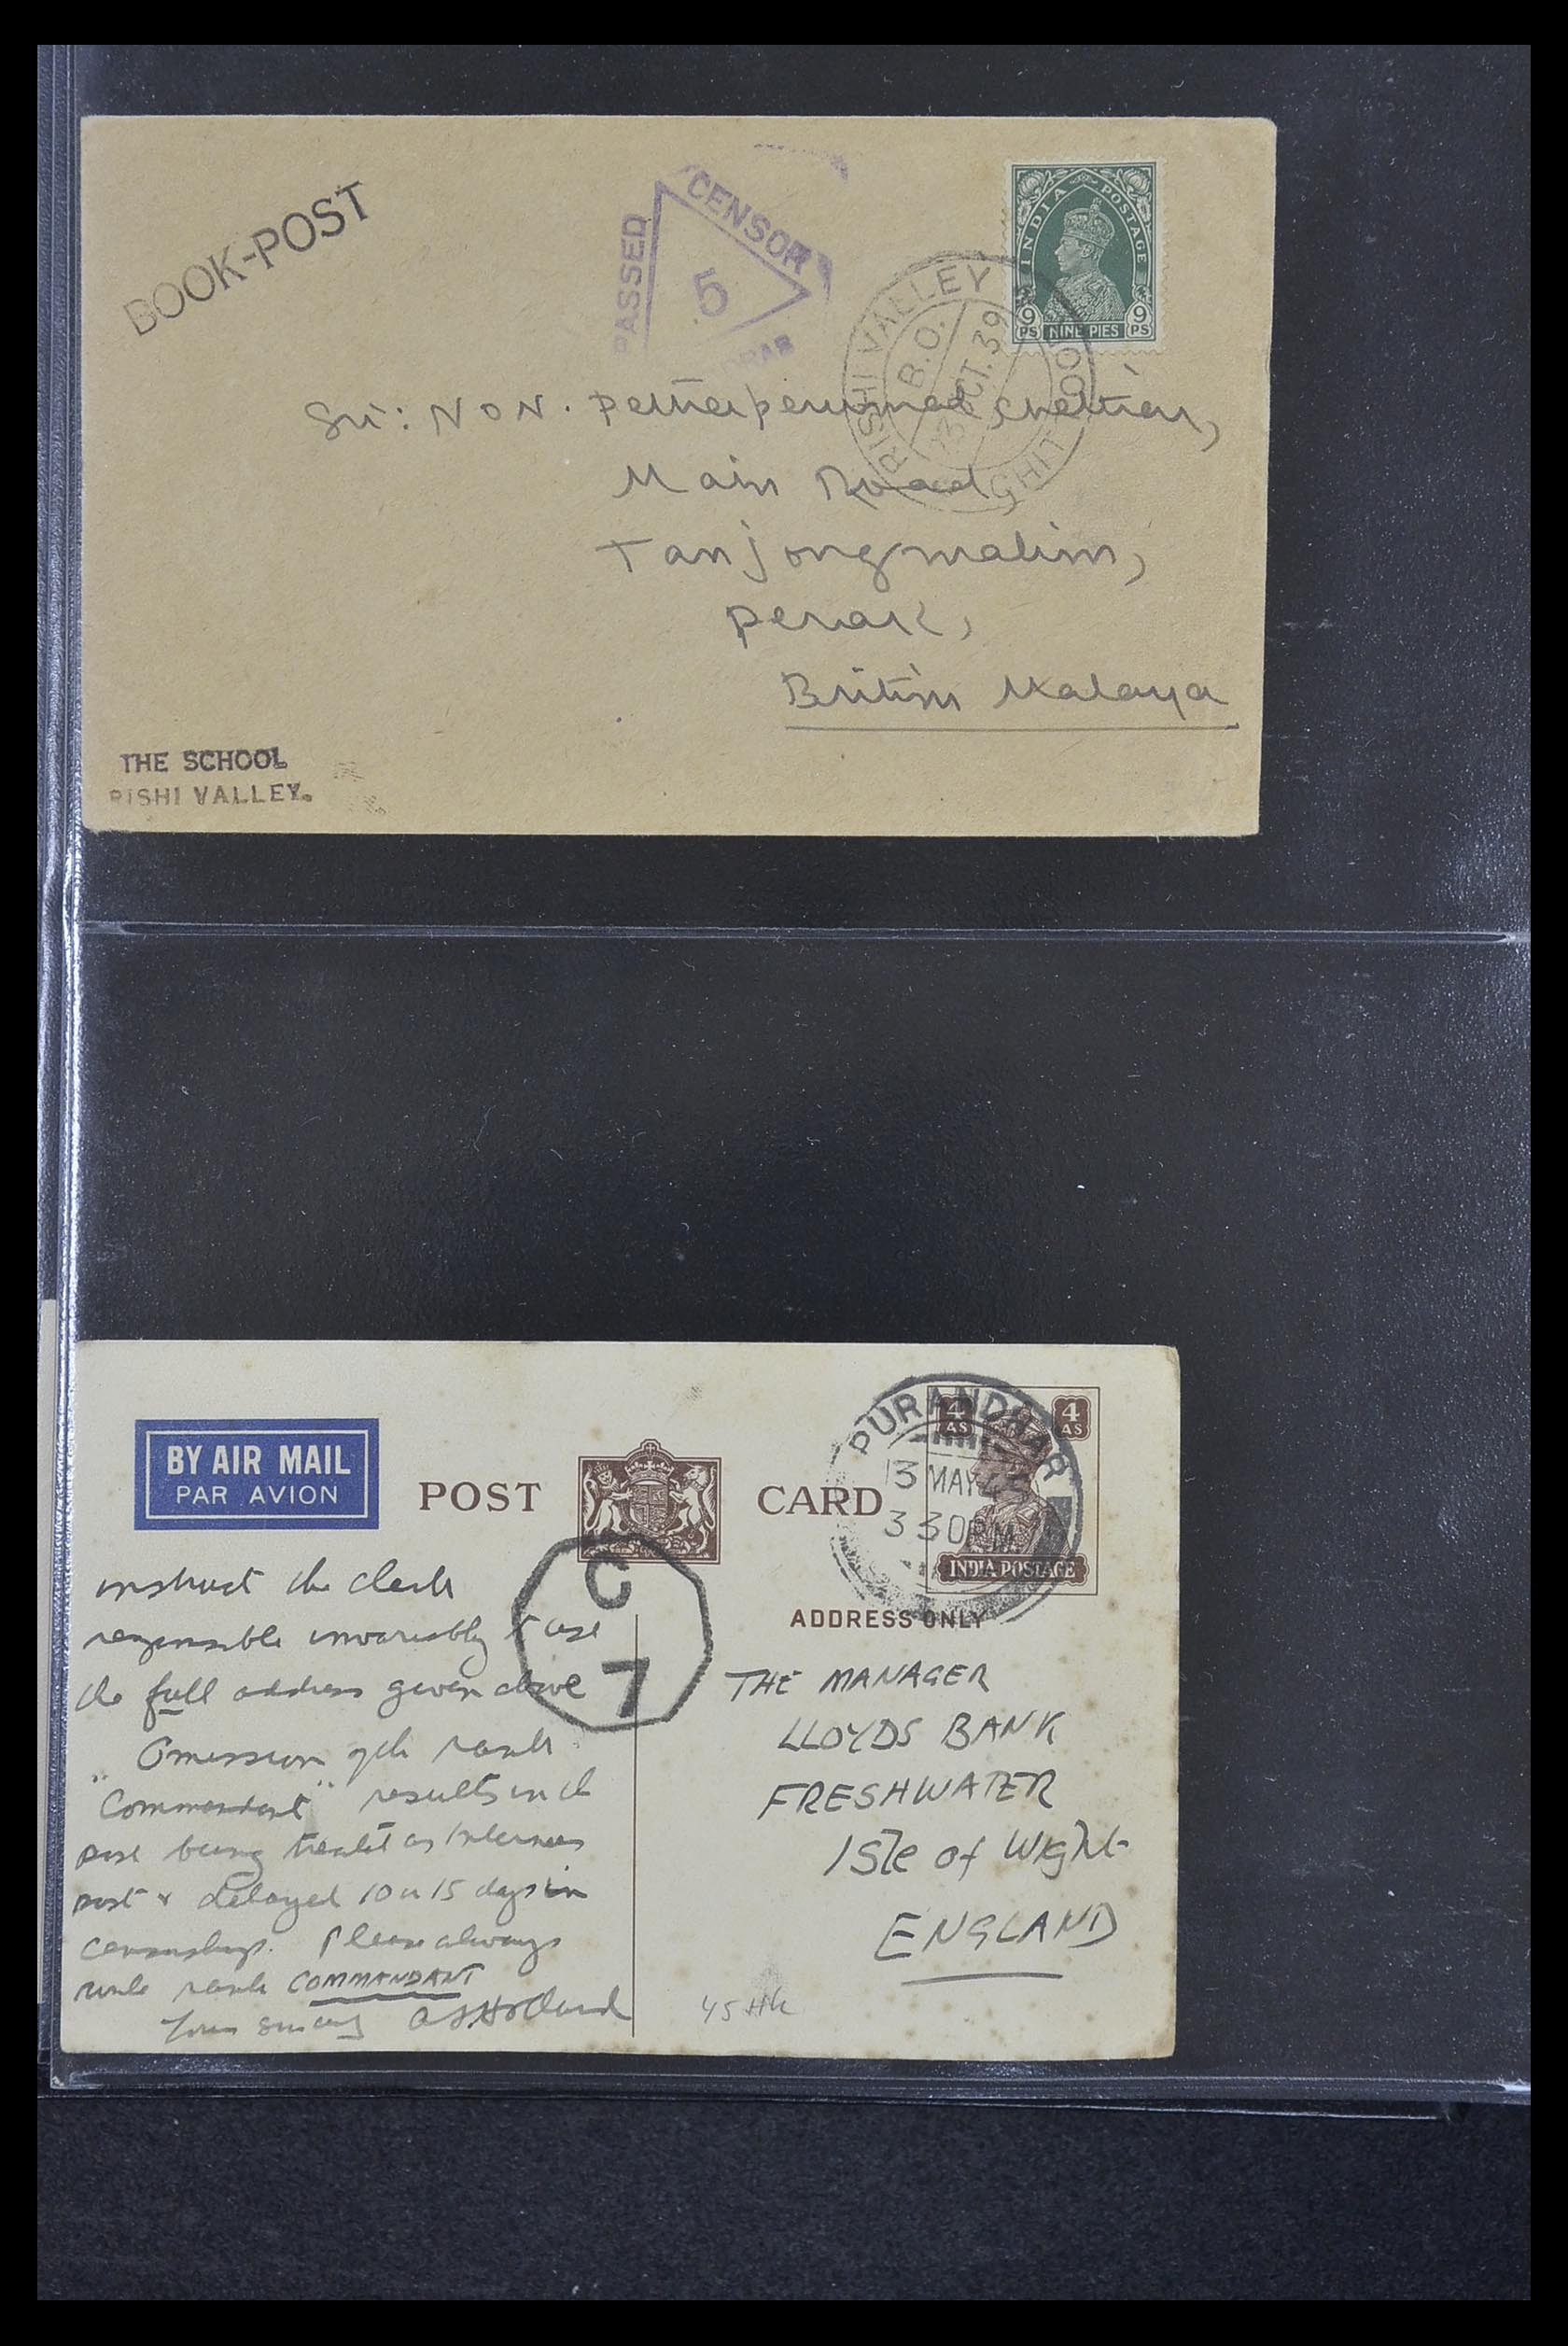 BOOK-POST
PASSED
CENSOR
5
INDIA POSTAGE
9 PS
NINE PIES
9 PS
RISHI VALLEY
B.O.
OCT. 39
Sri: N O N. Chettiar,
Main Road,
Tanjongmalim,
Perak,
British Malaya
THE SCHOOL
RISHI VALLEY.
BY AIR MAIL
PAR AVION
POST CARD
PURANDHAR
13 MAY
3 30PM
4 AS
4 AS
INDIA POSTAGE
ADDRESS ONLY
C
7
instruct the clerk
responsible invariably to use
the full address given above
Omission of the rank
"Commandant" results in the
post being treated as Internees
post & delayed 10 or 15 days in
censorship. Please always
write rank COMMANDANT
Yours sincerely Holland
THE MANAGER
LLOYDS BANK
FRESHWATER
Isle of Wight
ENGLAND
45